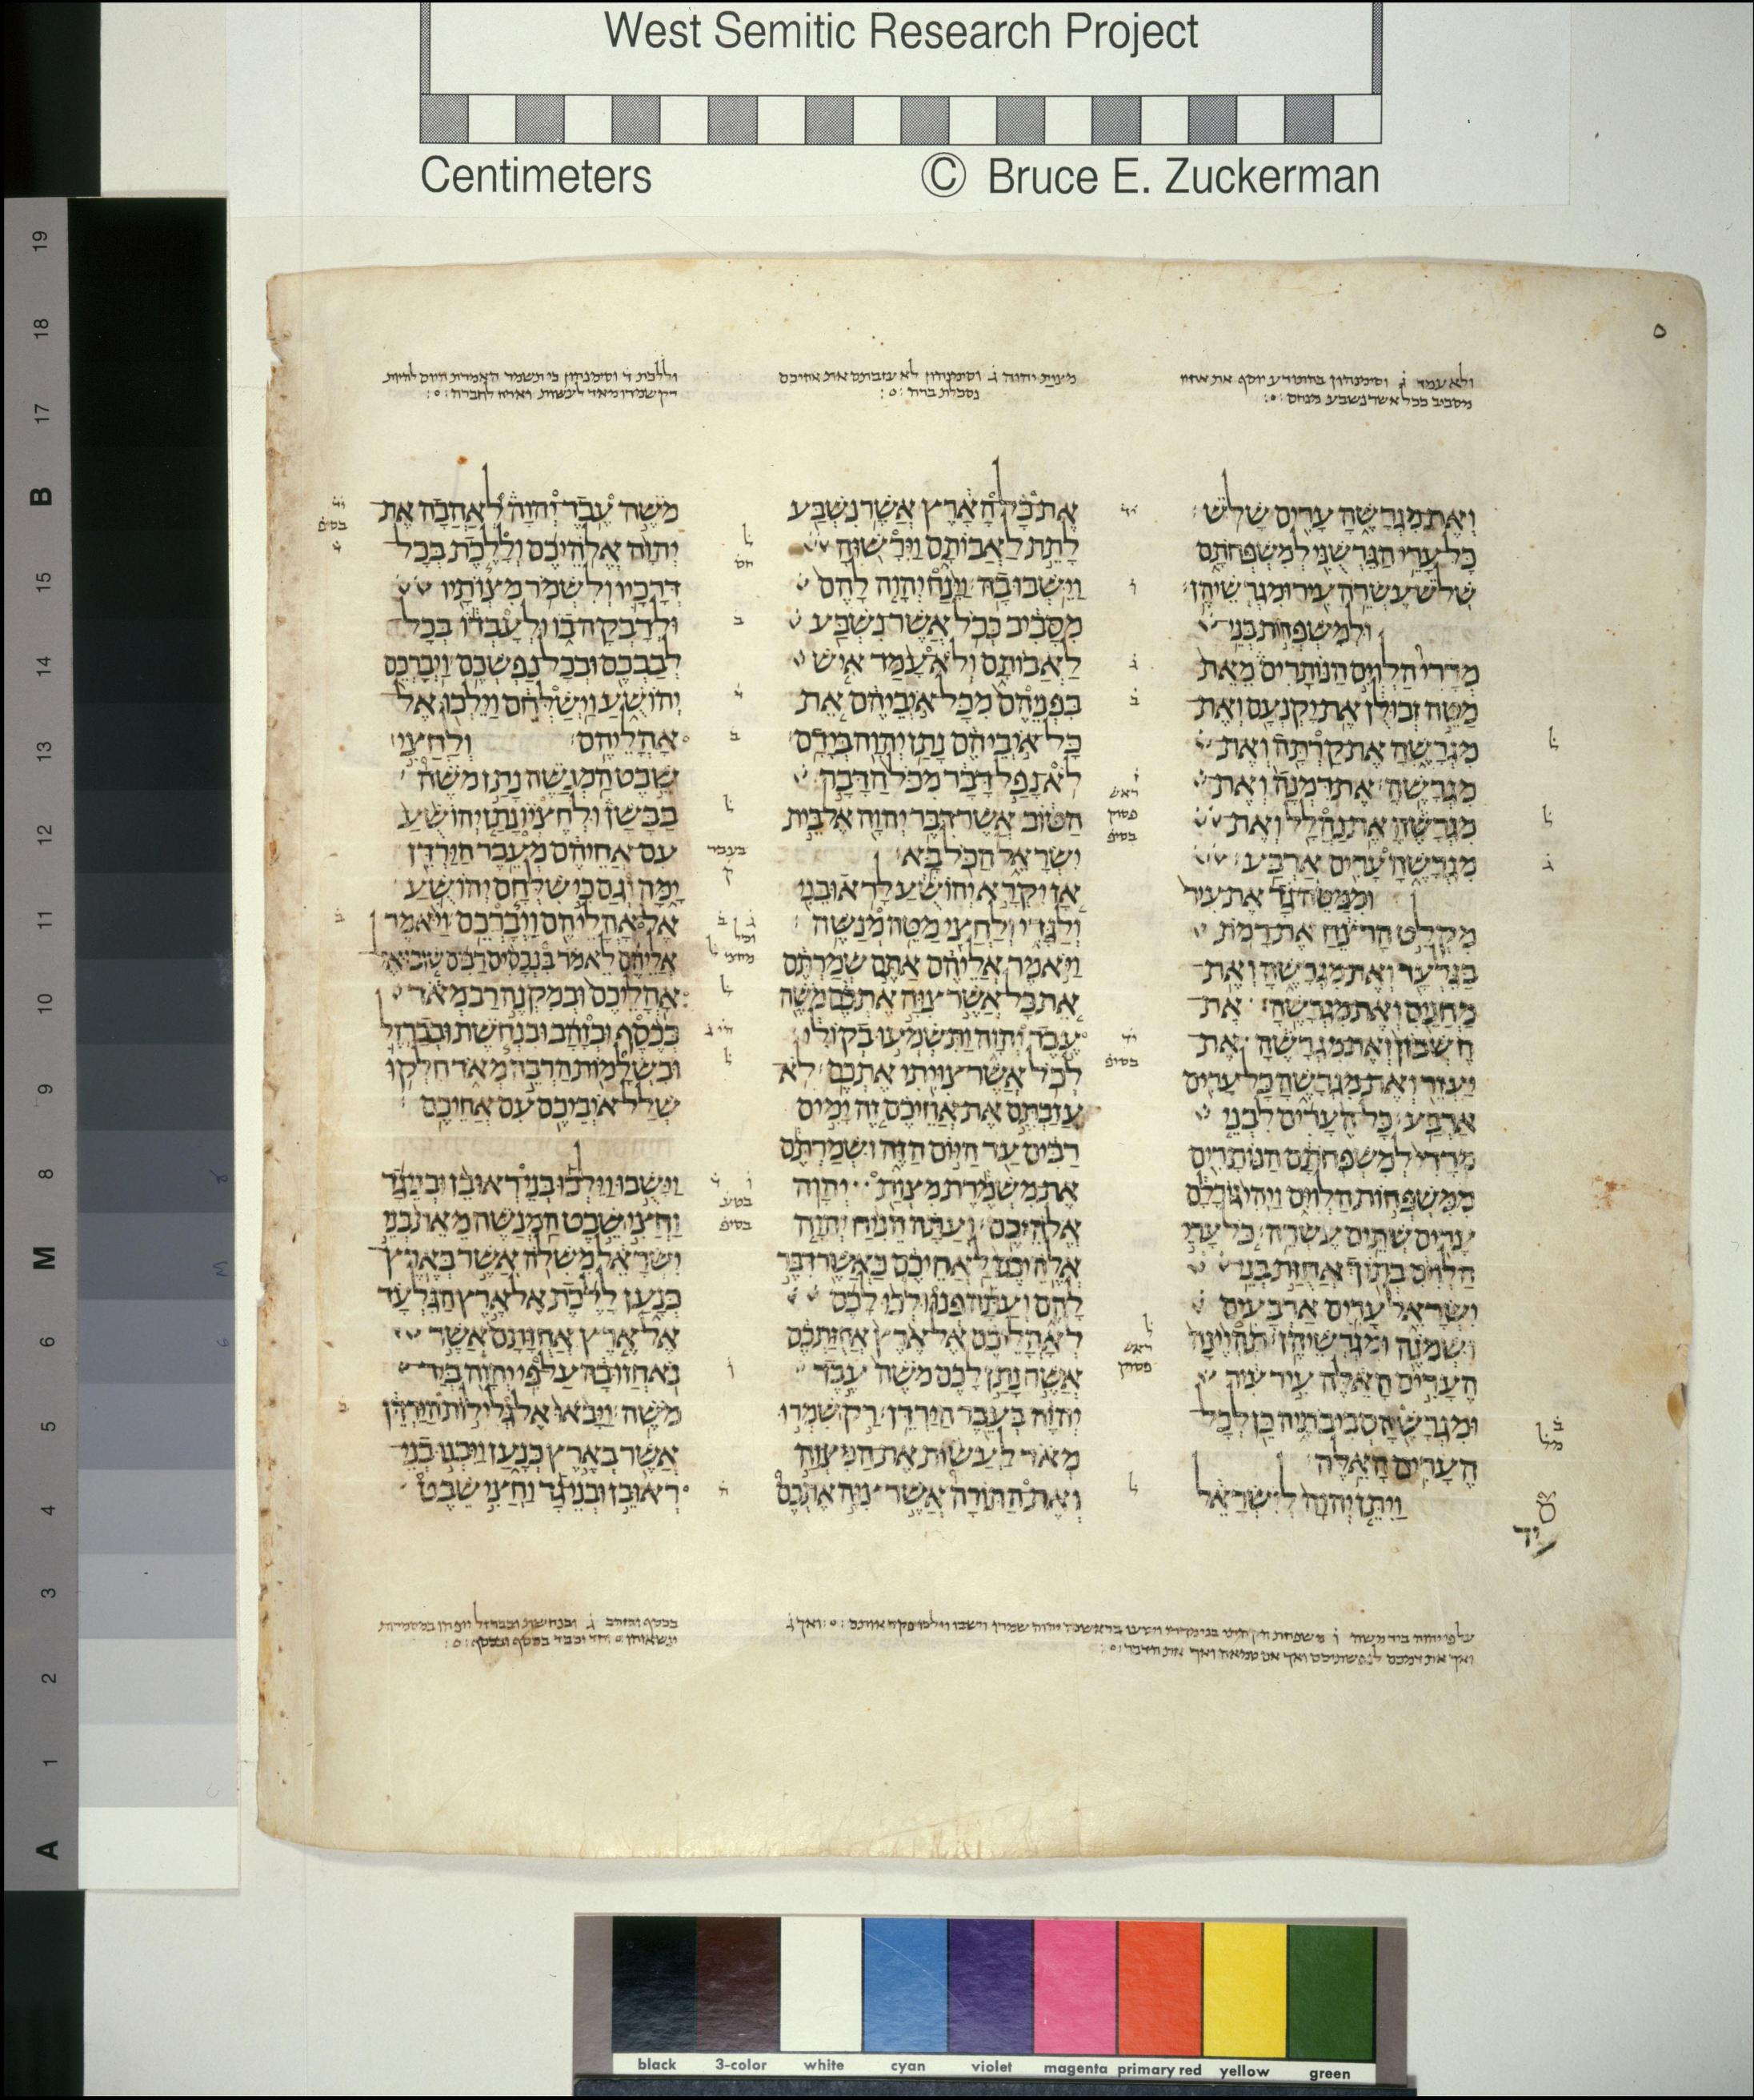 West Semitic Research Project
Centimeters © Bruce E. Zuckerman
ולא עמד ג וסימנהון בהתודע יוסף את אחיו
מסביב ככל אשר נשבע מנחם
מצות יהוה ג וסימנהון לא עזבתם את אחיכם
נסכלת ברח
וללכת ד וסימנהון כי תשמר האמרת היום להיות
רק שמרו מאד לעשות וארח לחברה
ואת מגרשה ערים שלש
כל ערי הגרשני למשפחתם
שלש עשרה עיר ומגרשיהן
ולמשפחות בני
מררי הלוים הנותרים מאת
מטה זבולן את יקנעם ואת
מגרשה את קרתה ואת
מגרשה את דמנה ואת
מגרשה את נהלל ואת
מגרשה ערים ארבע
וממטה גד את עיר
מקלט הרצח את רמת
בגלעד ואת מגרשה ואת
מחנים ואת מגרשה את
חשבון ואת מגרשה את
יעזר ואת מגרשה כל ערים
ארבע כל הערים לבני
מררי למשפחתם הנותרים
ממשפחות הלוים ויהי גורלם
ערים שתים עשרה כל ערי
הלוים בתוך אחזת בני
ישראל ערים ארבעים
ושמנה ומגרשיהן תהיינה
הערים האלה עיר עיר
ומגרשה סביבתיה כן לכל
הערים האלה
ויתן יהוה לישראל
את כל הארץ אשר נשבע
לתת לאבותם וירשוה
וישבו בה וינח יהוה להם
מסביב ככל אשר נשבע
לאבותם ולא עמד איש
בפניהם מכל איביהם את
כל איביהם נתן יהוה בידם
לא נפל דבר מכל הדבר
הטוב אשר דבר יהוה אל בית
ישראל הכל בא
אז יקרא יהושע לראובני
ולגדי ולחצי מטה מנשה
ויאמר אליהם אתם שמרתם
את כל אשר צוה אתכם משה
עבד יהוה ותשמעו בקולי
לכל אשר צויתי אתכם לא
עזבתם את אחיכם זה ימים
רבים עד היום הזה ושמרתם
את משמרת מצות יהוה
אלהיכם ועתה הניח יהוה
אלהיכם לאחיכם כאשר דבר
להם ועתה פנו ולכו לכם
לאהליכם אל ארץ אחזתכם
אשר נתן לכם משה עבד
יהוה בעבר הירדן רק שמרו
מאד לעשות את המצוה
ואת התורה אשר צוה אתכם
משה עבד יהוה לאהבה את
יהוה אלהיכם וללכת בכל
דרכיו ולשמר מצותיו
ולדבקה בו ולעבדו בכל
לבבכם ובכל נפשכם ויברכם
יהושע וישלחם וילכו אל
אהליהם ולחצי
שבט המנשה נתן משה
בבשן ולחציו נתן יהושע
עם אחיהם מעבר הירדן
ימה וגם כי שלחם יהושע
אל אהליהם ויברכם ויאמר
אליהם לאמר בנכסים רבים שובו אל
אהליכם ובמקנה רב מאד
בכסף ובזהב ובנחשת ובברזל
ובשלמות הרבה מאד חלקו
שלל איביכם עם אחיכם
וישבו וילכו בני ראובן ובני גד
וחצי שבט המנשה מאת בני
ישראל משלה אשר בארץ
כנען ללכת אל ארץ הגלעד
אל ארץ אחזתם אשר
נאחזו בה על פי יהוה ביד
משה ויבאו אל גלילות הירדן
אשר בארץ כנען ויבנו בני
ראובן ובני גד וחצי שבט
על פי יהוה ביד משה ו
בכסף והזהב ג ובנחשת ובברזל
black 3-color white cyan violet magenta primary red yellow green
19
18
17
B
16
15
14
13
12
11
10
9
8
M
6
5
4
3
2
1
A